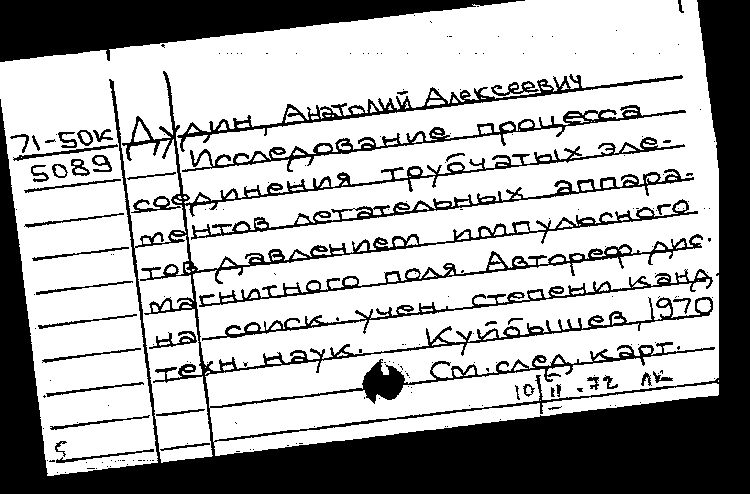 Дудин, Анатолий Алексеевич
71-50к
5089
Исследование процесса
соединения трубчатых эле-
ментов летательных аппара-
тов давлением импульсного
магнитного поля. Автореф. дис.
на соиск. учен. степени канд.
техн. наук. Куйбышев, 1970
См. след. карт.
10/II-72 ЛК
5